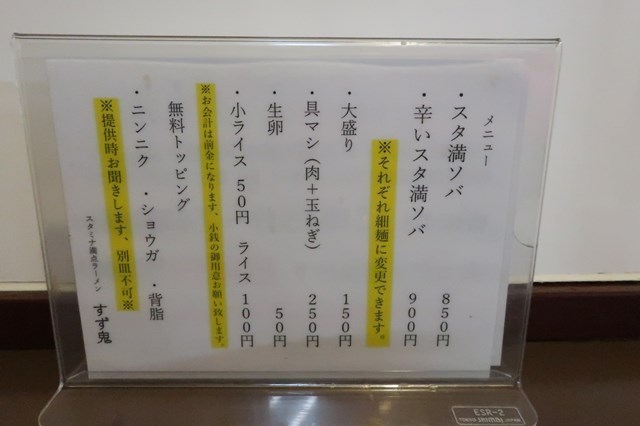 メニュー
・スタ満ソバ 850円
・辛いスタ満ソバ 900円
※それぞれ細麺に変更できます。
・大盛り 150円
・具マシ(肉+玉ねぎ) 250円
・生卵 50円
・小ライス 50円 ライス 100円
※お会計は前金になります、小銭の御用意お願い致します。
無料トッピング
・ニンニク ・ショウガ ・背脂
※提供時お聞きします、別皿不可※
スタミナ満点ラーメン すず鬼
ESR-2